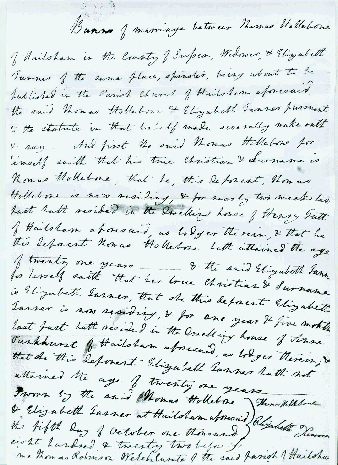 Banns of marriage between Thomas Hollebone
of Hailsham in the County of Sussex, Widower, & Elizabeth
Turner of the same place, spinster, being about to be
published in the Parish Church of Hailsham aforesaid
the said Thomas Hollebone & Elizabeth Turner pursuant
to the statute in that behalf made severally make oath
& say And first the said Thomas Hollebone for
himself saith that his true Christian & Surname is
Thomas Hollebone that he, this deponent, Thomas
Hollebone is now residing, & for nearly two weeks last
past hath resided in the Dwelling house of Henry
of Hailsham aforesaid, as lodger therein, & that he
this Deponent Thomas Hollebone hath attained the age
of twenty one years & the said Elizabeth Turner
for herself saith that her true Christian & Surname
is Elizabeth Turner, that she this deponent Elizabeth
Turner is now residing, & for one year & five months
last past hath resided in the Dwelling house of
of Hailsham aforesaid, as lodger therein, &
that she this Deponent Elizabeth Turner hath not
attained the age of twenty one years
Sworn by the said Thomas Hollebone
& Elizabeth Turner at Hailsham aforesaid
the fifth Day of October one thousand
eight hundred & twenty two before
me Thomas Robinson of the said parish of Hailsham